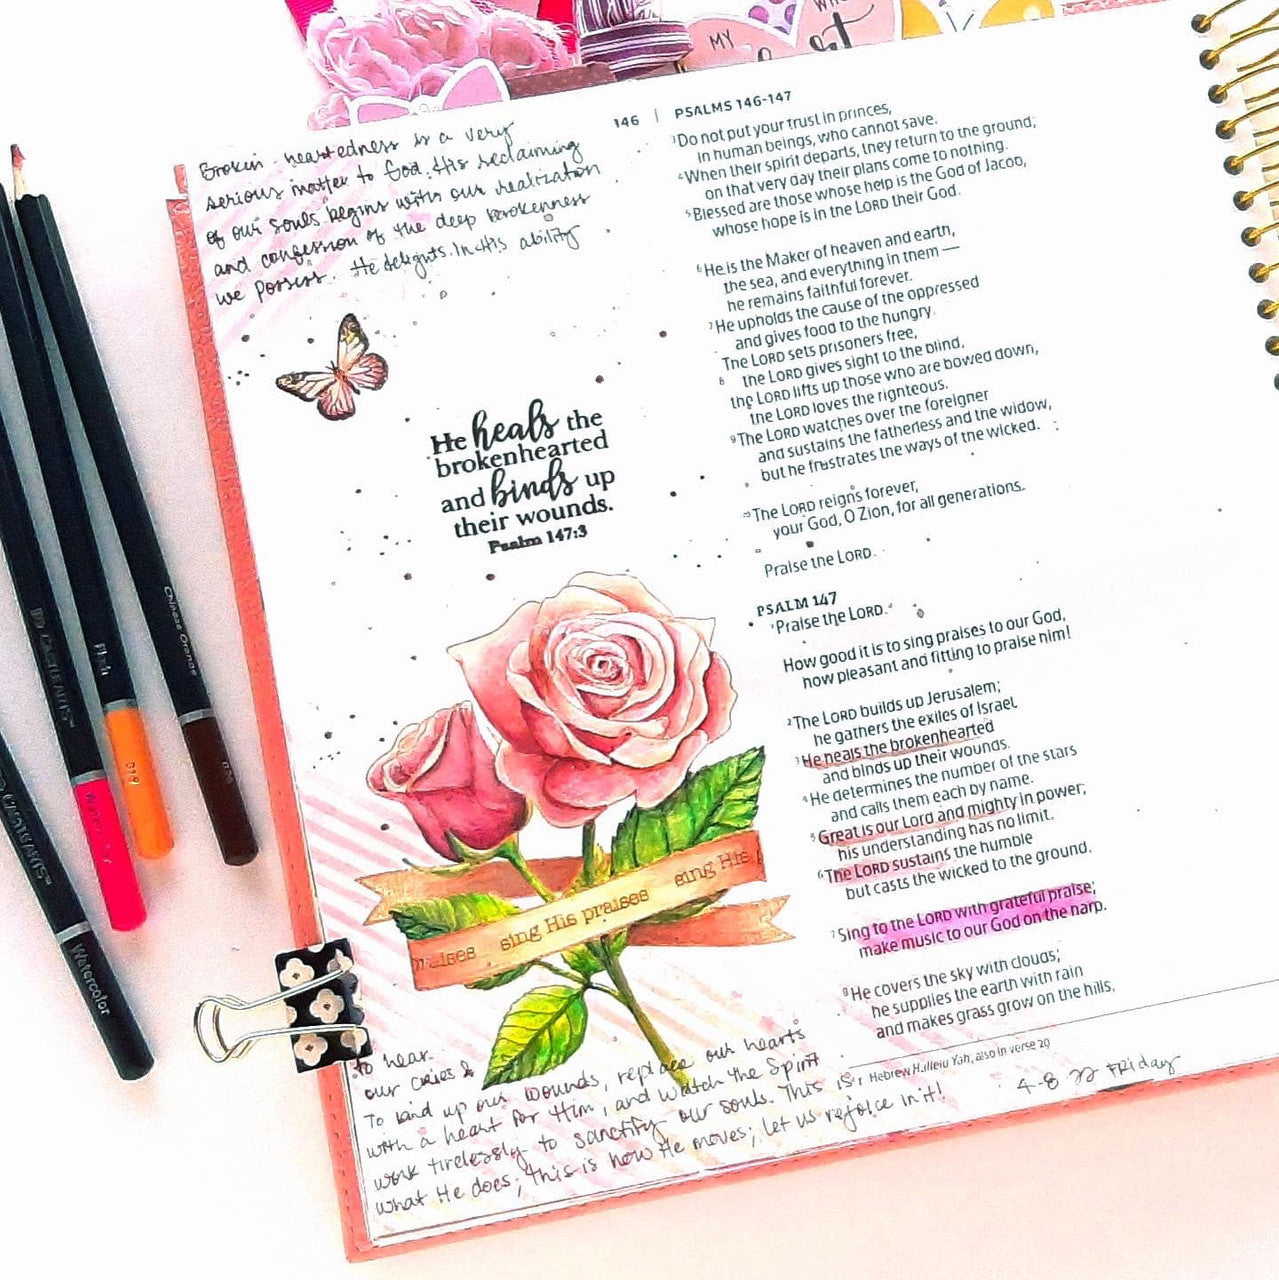 MY
Broken-heartedness is a very
serious matter to God. His reclaiming
of our souls begins with our realization
and confession of the deep brokenness
we possess. He delights in His ability
He heals the
brokenhearted
and binds up
their wounds.
Psalm 147:3
sing His praises sing His
to hear
our cries &
To bind up our wounds, replace our hearts
with a heart for Him, and watch the Spirit
work tirelessly to sanctify our souls. This is
what He does; this is how He moves; let us rejoice in it!
146 | PSALMS 146-147
3Do not put your trust in princes,
in human beings, who cannot save.
4When their spirit departs, they return to the ground;
on that very day their plans come to nothing.
5Blessed are those whose help is the God of Jacob,
whose hope is in the LORD their God.
6He is the Maker of heaven and earth,
the sea, and everything in them —
he remains faithful forever.
7He upholds the cause of the oppressed
and gives food to the hungry.
The LORD sets prisoners free,
8 the LORD gives sight to the blind,
the LORD lifts up those who are bowed down,
the LORD loves the righteous.
9The LORD watches over the foreigner
and sustains the fatherless and the widow,
but he frustrates the ways of the wicked.
10The LORD reigns forever,
your God, O Zion, for all generations.
Praise the LORD.
PSALM 147
1Praise the LORD.
How good it is to sing praises to our God,
how pleasant and fitting to praise him!
2The LORD builds up Jerusalem;
he gathers the exiles of Israel.
3He heals the brokenhearted
and binds up their wounds.
4He determines the number of the stars
and calls them each by name.
5Great is our Lord and mighty in power;
his understanding has no limit.
6The LORD sustains the humble
but casts the wicked to the ground.
7Sing to the LORD with grateful praise;
make music to our God on the harp.
8He covers the sky with clouds;
he supplies the earth with rain
and makes grass grow on the hills.
1 Hebrew Hallelu Yah; also in verse 20
4-8-22 FRiday
Chinese Orange
Watercolor